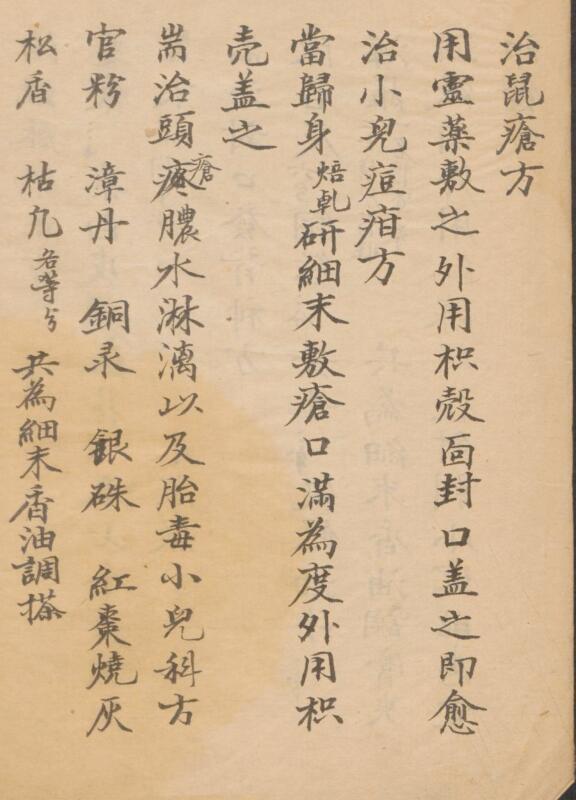 治鼠瘡方
用靈薬敷之外用枳殼面封口盖之即愈
治小兒痘疳方
當歸身焙乹研細末敷瘡口滿為度外用枳
売盖之
耑治頭瘡膿水淋漓以及胎毒小兒科方
官粉 漳丹 銅彔 銀硃 紅棗燒灰
松香 枯凢各等分 共為細末香油調搽